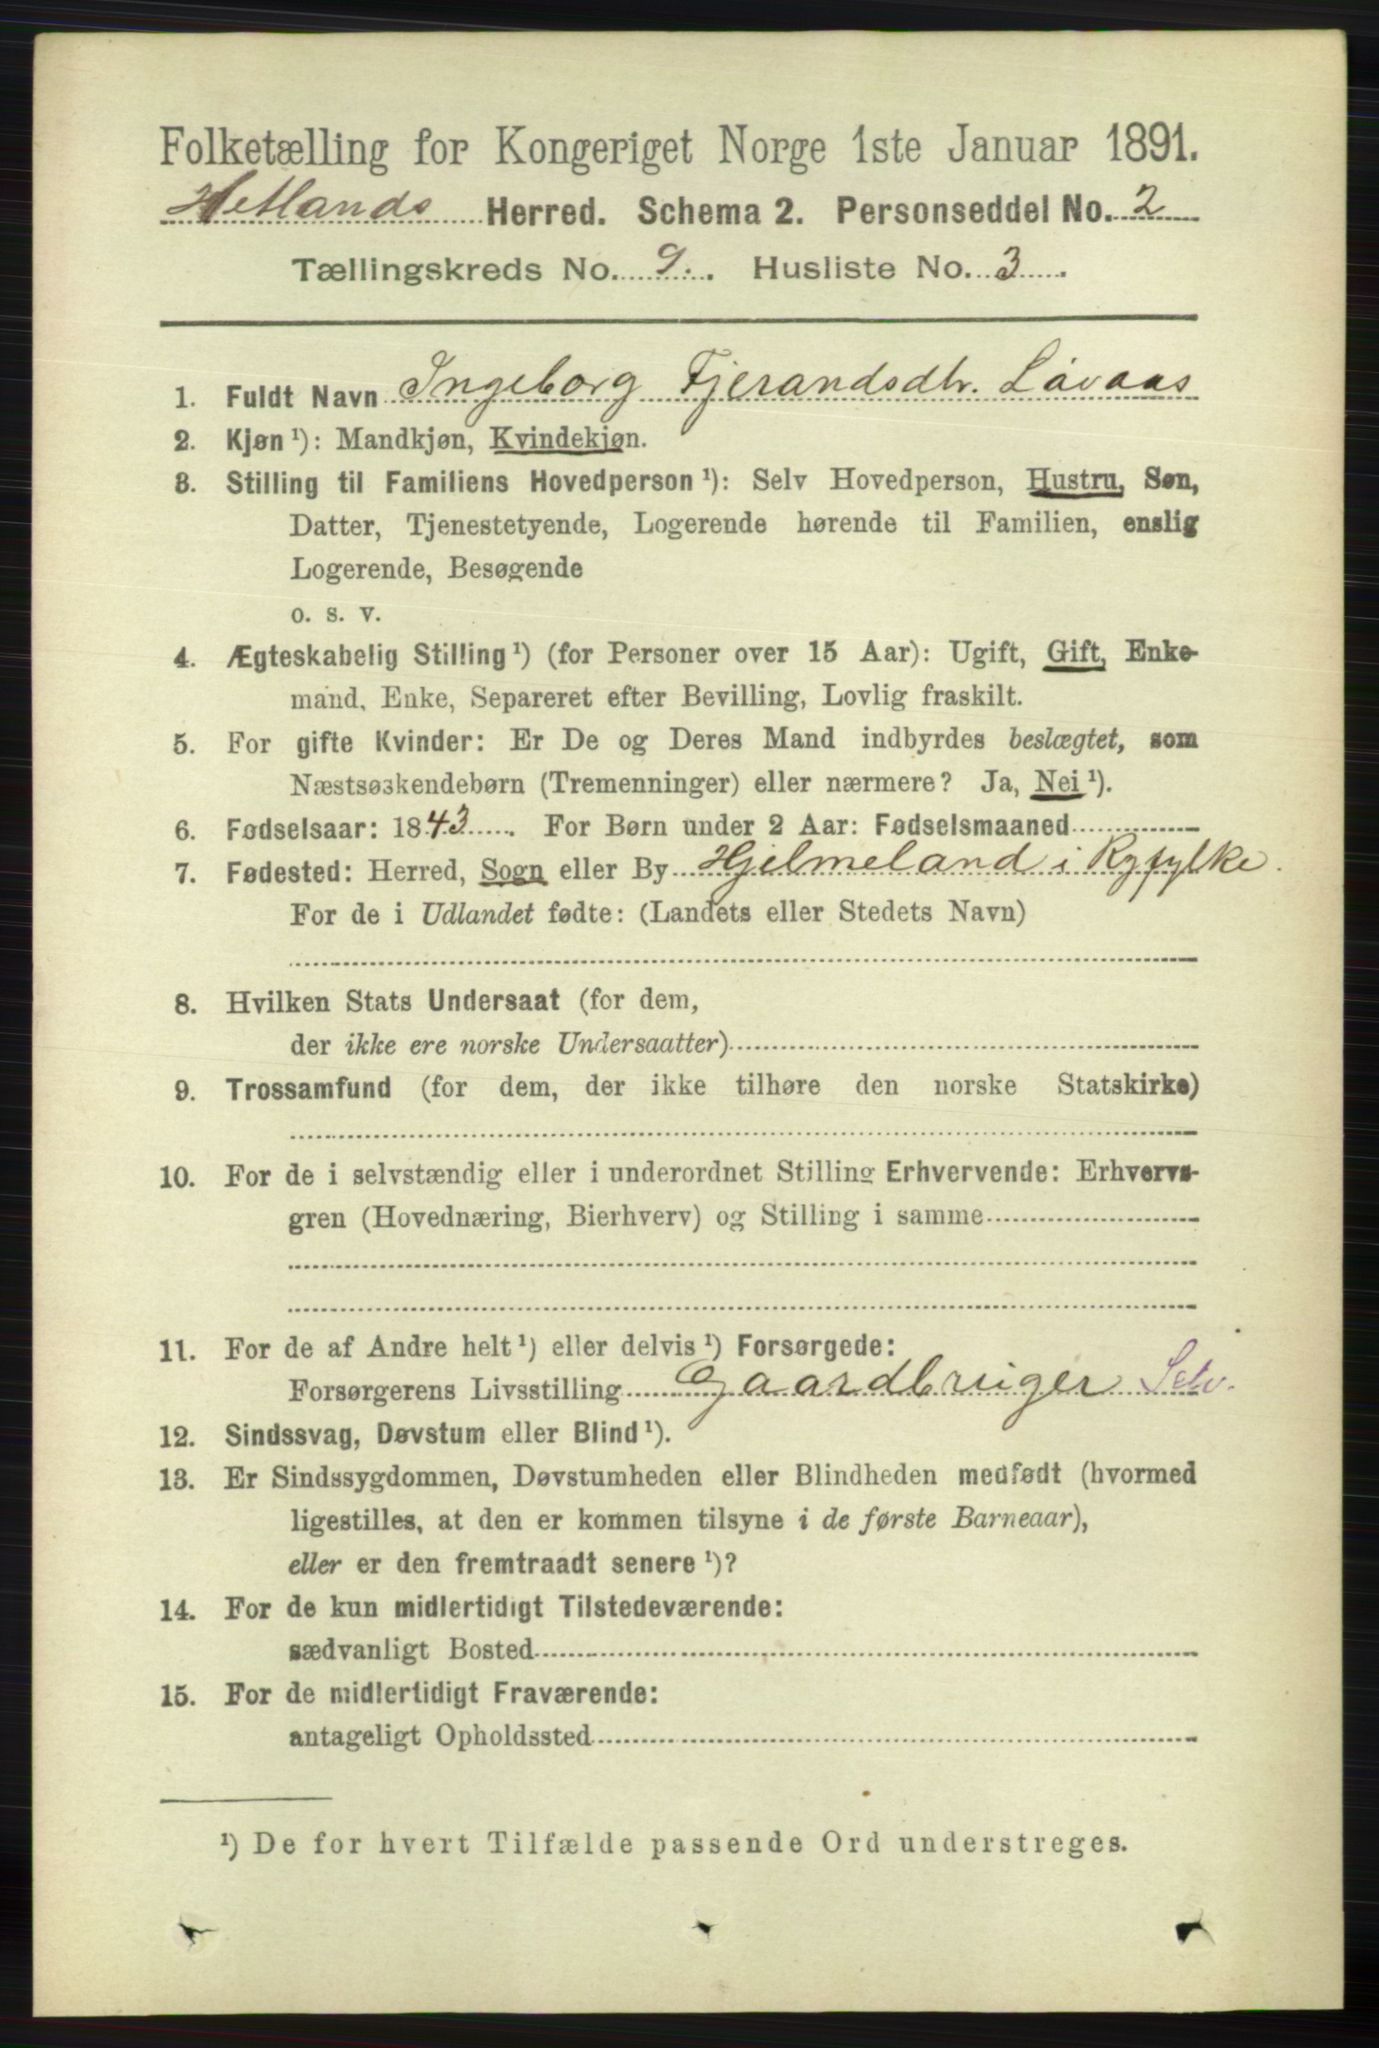 Folketælling for Kongeriget Norge 1ste Januar 1891.
Hetlands Herred. Schema 2. Personseddel No. 2
Tællingskreds No. 9. Husliste No. 3
1. Fuldt Navn Ingeborg Fjerandsdtr. Låvaas
2. Kjøn¹): Mandkjøn, Kvindekjøn.
3. Stilling til Familiens Hovedperson¹): Selv Hovedperson, Hustru, Søn,
Datter, Tjenestetyende, Logerende hørende til Familien, enslig
Logerende, Besøgende
o. s. v.
4. Ægteskabelig Stilling¹) (for Personer over 15 Aar): Ugift, Gift, Enke-
mand, Enke, Separeret efter Bevilling, Lovlig fraskilt.
5. For gifte Kvinder: Er De og Deres Mand indbyrdes beslægtet, som
Næstsøskendebørn (Tremenninger) eller nærmere? Ja, Nei¹).
6. Fødselsaar: 1843. For Børn under 2 Aar: Fødselsmaaned
7. Fødested: Herred, Sogn eller By Hjelmeland i Ryfylke.
For de i Udlandet fødte: (Landets eller Stedets Navn)
8. Hvilken Stats Undersaat (for dem,
der ikke ere norske Undersaatter)
9. Trossamfund (for dem, der ikke tilhøre den norske Statskirke)
10. For de i selvstændig eller i underordnet Stilling Erhvervende: Erhvervs-
gren (Hovednæring, Bierhverv) og Stilling i samme
11. For de af Andre helt¹) eller delvis¹) Forsørgede:
Forsørgerens Livsstilling Gaardbruger Selv.
12. Sindssvag, Døvstum eller Blind¹).
13. Er Sindssygdommen, Døvstumheden eller Blindheden medfødt (hvormed
ligestilles, at den er kommen tilsyne i de første Barneaar),
eller er den fremtraadt senere¹)?
14. For de kun midlertidigt Tilstedeværende:
sædvanligt Bosted
15. For de midlertidigt Fraværende:
antageligt Opholdssted
¹) De for hvert Tilfælde passende Ord understreges.